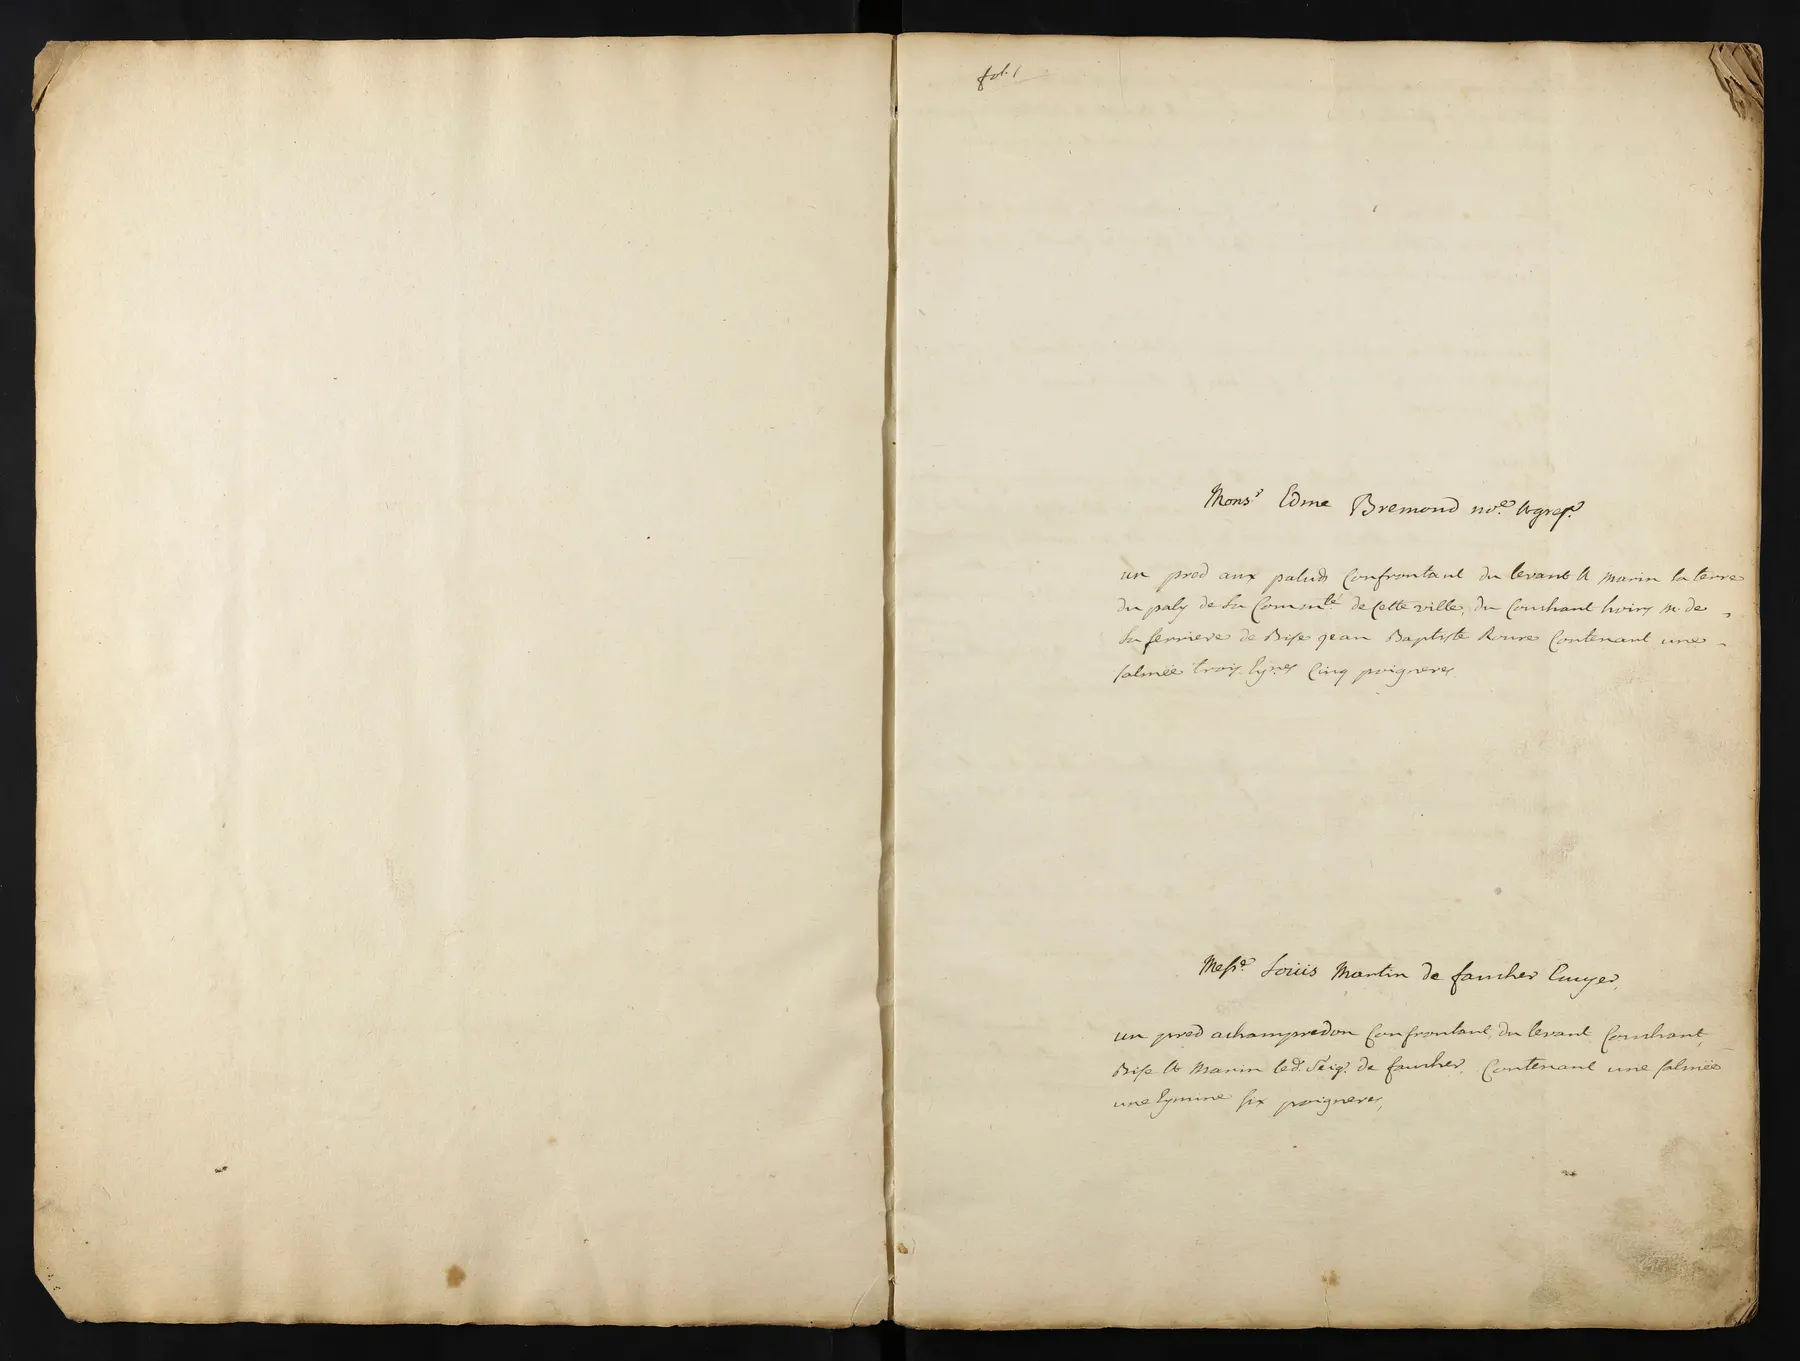 fol. 1
Mons.r Edme Bremond no.re & gref.r
un pred aux paluds Confrontant du levant & marin la terre
du paty de la Commté de Cette ville, du Couchant hoirs m. de
la ferriere de Bise jean Baptiste Roure Contenant une
salmée trois Eymes Cinq poigneres
Messe. Loüis Martin de faucher Ecuyer,
un pred a champredon Confrontant, du levant Couchant,
Bise & Marin led. Seigr. de faucher. Contenant une salmée
une Eymine six poigneres,